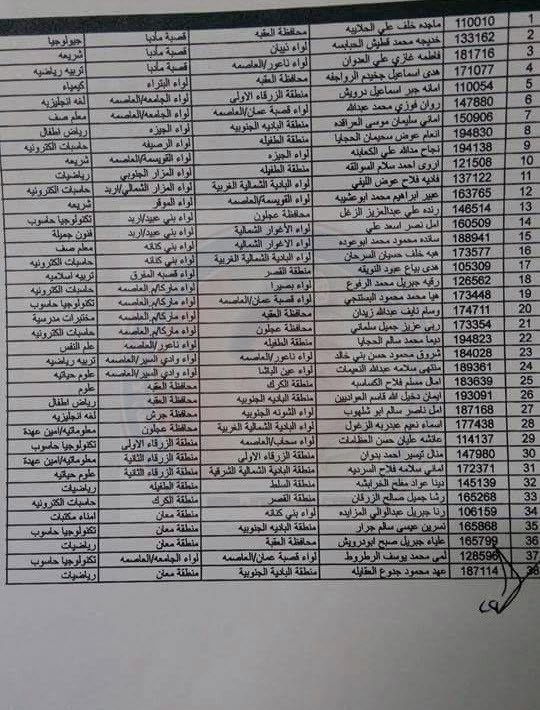 1 110010 ماجده خلف علي الحلايبه محافظة العقبه قصبة مأدبا جيولوجيا
2 133162 خديجه محمد قطيش الحبابسه لواء ذيبان قصبة مأدبا شريعه
3 181716 فاطمه غازي علي العدوان لواء ناعور/العاصمه قصبة مأدبا تربيه رياضيه
4 171077 هدى اسماعيل جخيدم الرواجفه محافظة العقبه لواء البتراء كيمياء
5 110054 امانه جبر اسماعيل درويش منطقة الزرقاء الاولى لواء الجامعه/العاصمه لغه انجليزيه
6 147880 روان فوزي محمد عبدالله لواء قصبة عمان/العاصمه لواء الجامعه/العاصمه معلم صف
7 150906 اماني سليمان موسى العرافده منطقة الباديه الجنوبيه لواء الجيزه رياض اطفال
8 194830 انعام عوض سحيمان الحجايا منطقة الطفيله لواء الرصيفه حاسبات الكترونيه
9 194138 نجاح مدالله علي الكعابنه لواء الجيزه لواء القويسمة/العاصمه شريعه
10 121508 اروى احمد سلام السوالقه منطقة الطفيله لواء المزار الجنوبي رياضيات
11 137122 فاديه فلاح عوض الليفي لواء البادية الشمالية الغربية لواء المزار الشمالي/اربد حاسبات الكترونيه
12 163765 عبير ابراهيم محمد ابوعشيبه لواء القويسمة/العاصمه لواء الموقر شريعه
13 146514 رنده علي عبدالعزيز الزغل محافظة عجلون لواء بني عبيد/اربد تكنولوجيا حاسوب
14 160509 امل نصر اسعد علي لواء الأغوار الشمالية لواء بني عبيد/اربد فنون جميلة
15 188941 سانده محمود محمد ابوعوده لواء الاغوار الشماليه لواء بني كنانه معلم صف
16 173577 هبه خلف حسيان السرحان لواء البادية الشمالية الغربية لواء بني كنانه حاسبات الكترونيه
17 105309 هدى بياع عبود النويقه منطقة القصر لواء قصبه المفرق تربيه اسلاميه
18 126562 رقيه جبريل محمد الرفوع لواء بصيرا لواء ماركا/م.العاصمه حاسبات الكترونيه
19 173448 هيا محمد محمود البستنجي لواء قصبة عمان/العاصمه لواء ماركا/م.العاصمه تكنولوجيا حاسوب
20 174711 وسام نايف عدالله زيدان محافظة العقبه لواء ماركا/م.العاصمه مختبرات مدرسية
21 173354 ربى عزيز جميل سلماني محافظة عجلون لواء ماركا/م.العاصمه حاسبات الكترونيه
22 194823 ديما محمد سالم الحجايا منطقة الطفيله لواء ناعور/العاصمه علم النفس
23 184028 شروق محمود حسن بني خالد لواء ناعور/العاصمه لواء وادي السير/العاصمه تربيه رياضيه
24 189361 منتهى سلامه عبدالله النعيمات لواء عين الباشا لواء وادي السير/العاصمه علوم حياتيه
25 183639 امال مسلم فلاح الكساسبه منطقة الكرك محافظة العقبه علوم
26 193091 ايمان دخيل الله قاسم العوايدين منطقة الباديه الجنوبيه محافظة العقبه رياض اطفال
27 187168 امل ناصر سالم ابو شلهوب لواء الشونه الجنوبيه محافظة جرش لغه انجليزيه
28 177438 اسماء نعيم عبدربه الزغول لواء البادية الشمالية الغربية محافظة عجلون معلوماتيه/امين عهدة
29 114137 عائشه عليان حسن العظامات لواء سحاب/العاصمه منطقة الزرقاء الاولى تكنولوجيا حاسوب
30 147980 منال تيسير احمد بدوان منطقة الزرقاء الاولى منطقة الزرقاء الثانية معلوماتيه/امين عهدة
31 172371 اماني سلامه فلاح السرديه منطقة البادية الشمالية الشرقية منطقة الزرقاء الثانية علوم حياتيه
32 145139 دينا عواد مفلح الخرابشه منطقة السلط منطقة الطفيله رياضيات
33 165268 رشا جميل صالح الزرقان منطقة القصر منطقة الكرك حاسبات الكترونيه
34 106159 رنا جبريل عبدالوالي المزايده لواء بني كنانه منطقة معان امناء مكتبات
35 165868 نسرين عيسى سالم جرار منطقة الباديه الجنوبيه منطقة معان تكنولوجيا حاسوب
36 165799 علياء جبريل صبح ابودرويش محافظة العقبه منطقة معان رياضيات
37 128596 لمى محمد يوسف الرطروط لواء قصبة عمان/العاصمه لواء الجامعه/العاصمه تكنولوجيا حاسوب
38 187114 عهد محمود جدوع العقايله منطقة البادية الجنوبية منطقة معان رياضيات